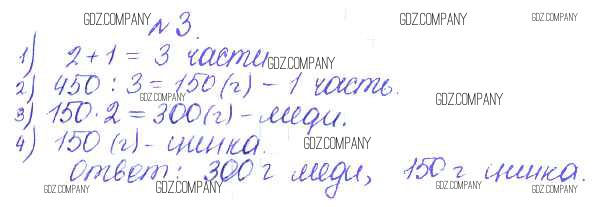 GDZ.COMPANY GDZ.COMPANY GDZ.COMPANY
№3.
1) 2+1 = 3 части
GDZ.COMPANY
2) 450 : 3 = 150 (г) - 1 часть.
GDZ.COMPANY GDZ.COMPANY
3) 150 · 2 = 300 (г) - меди.
GDZ.COMPANY
4) 150 (г) - цинка.
Ответ: 300 г меди, 150 г цинка.
GDZ.COMPANY GDZ.COMPANY GDZ.COMPANY GDZ.COMPANY